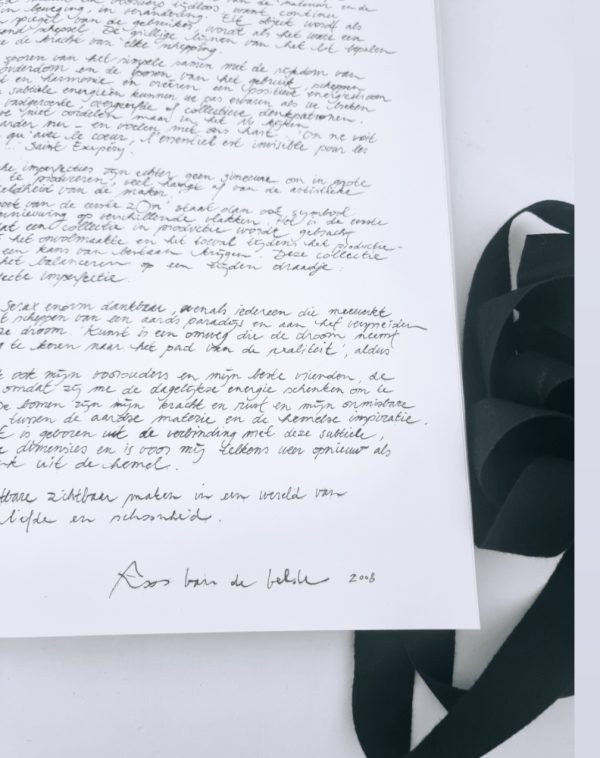 van de natuur en de
voorwerp tijdloos, want continu
in beweging, in verandering. Elk object wordt als
spiegel van de gebruiker, wordt als het ware een
schepsel. De grillige lijnen van het lot bepalen
de kracht van elke schepping.
sporen van het simpele samen met de rijkdom van
ouderdom en de sporen van het gebruik, scheppen
en harmonie en creëren een positieve energiestroom
subtiele energieën kunnen we pas ervaren als we breken
vastgeroeste, overgeërfde of collectieve denkpatronen.
we niet oordelen maar in het nu kijken
nu - en voelen met ons hart. 'On ne voit
qu'avec le coeur, l'essentiel est invisible pour les
Saint Exupéry.
imperfecties zijn echter geen sinecure om in grote
te produceren, veel hangt af van de artistieke
van de maker.
van de eerste zon' staat dan ook symbool
vernieuwing op verschillende vlakken. Het is de eerste
dat een collectie in productie wordt gebracht
het onvolmaakte en het toeval tijdens het productie-
een kans van bestaan krijgen. Deze collectie
het balanceren op een zijden draadje:
imperfectie.
Serax enorm dankbaar, evenals iedereen die meewerkt
scheppen van een aards paradijs en aan het verspreiden
droom. 'Kunst is een omweg die de droom neemt
te keren naar het pad van de realiteit', aldus
ook mijn voorouders en mijn beste vrienden, de
omdat zij me de dagelijkse energie schenken om te
bomen zijn mijn kracht en rust en mijn onmisbare
tussen de aardse materie en de hemelse inspiratie.
is geboren uit de verbinding met deze subtiele,
dimensies en is voor mij telkens weer opnieuw als
uit de hemel.
zichtbaar maken in een wereld van
liefde en schoonheid.
Roos Van de Velde 2008